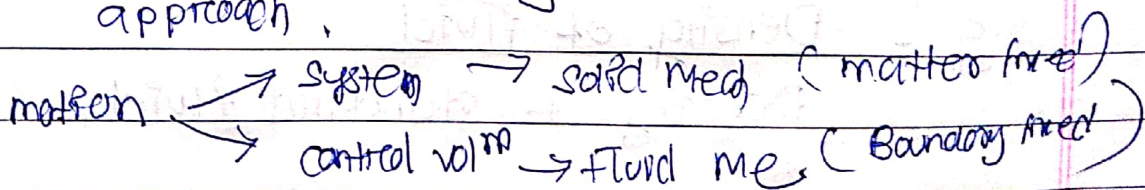 approach.
motion → system → solid Mech (matter fixed)
→ control volm → Fluid me. (Boundary fixed)